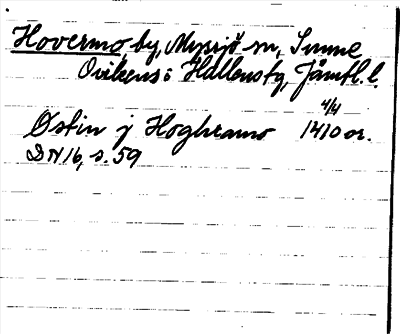 Hovermo by, Myssjö sn, Sunne
Ovikens o Hallens tg, Jämtl. l.
4/4
Østin j Hoghramo 1410 or.
DN 16, s. 59